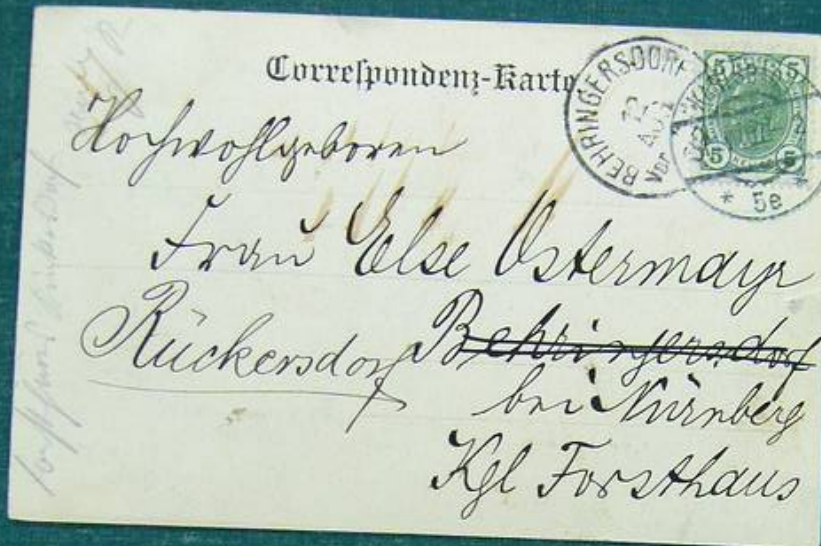 Correspondenz-Karte
BEHRINGERSDORF
12
AUG
Vor
5 5
5 5
* 5e
Hochwohlgeboren
Frau Else Ostermayr
Rückersdorf Behringersdorf
bei Nürnberg
Kgl Forsthaus